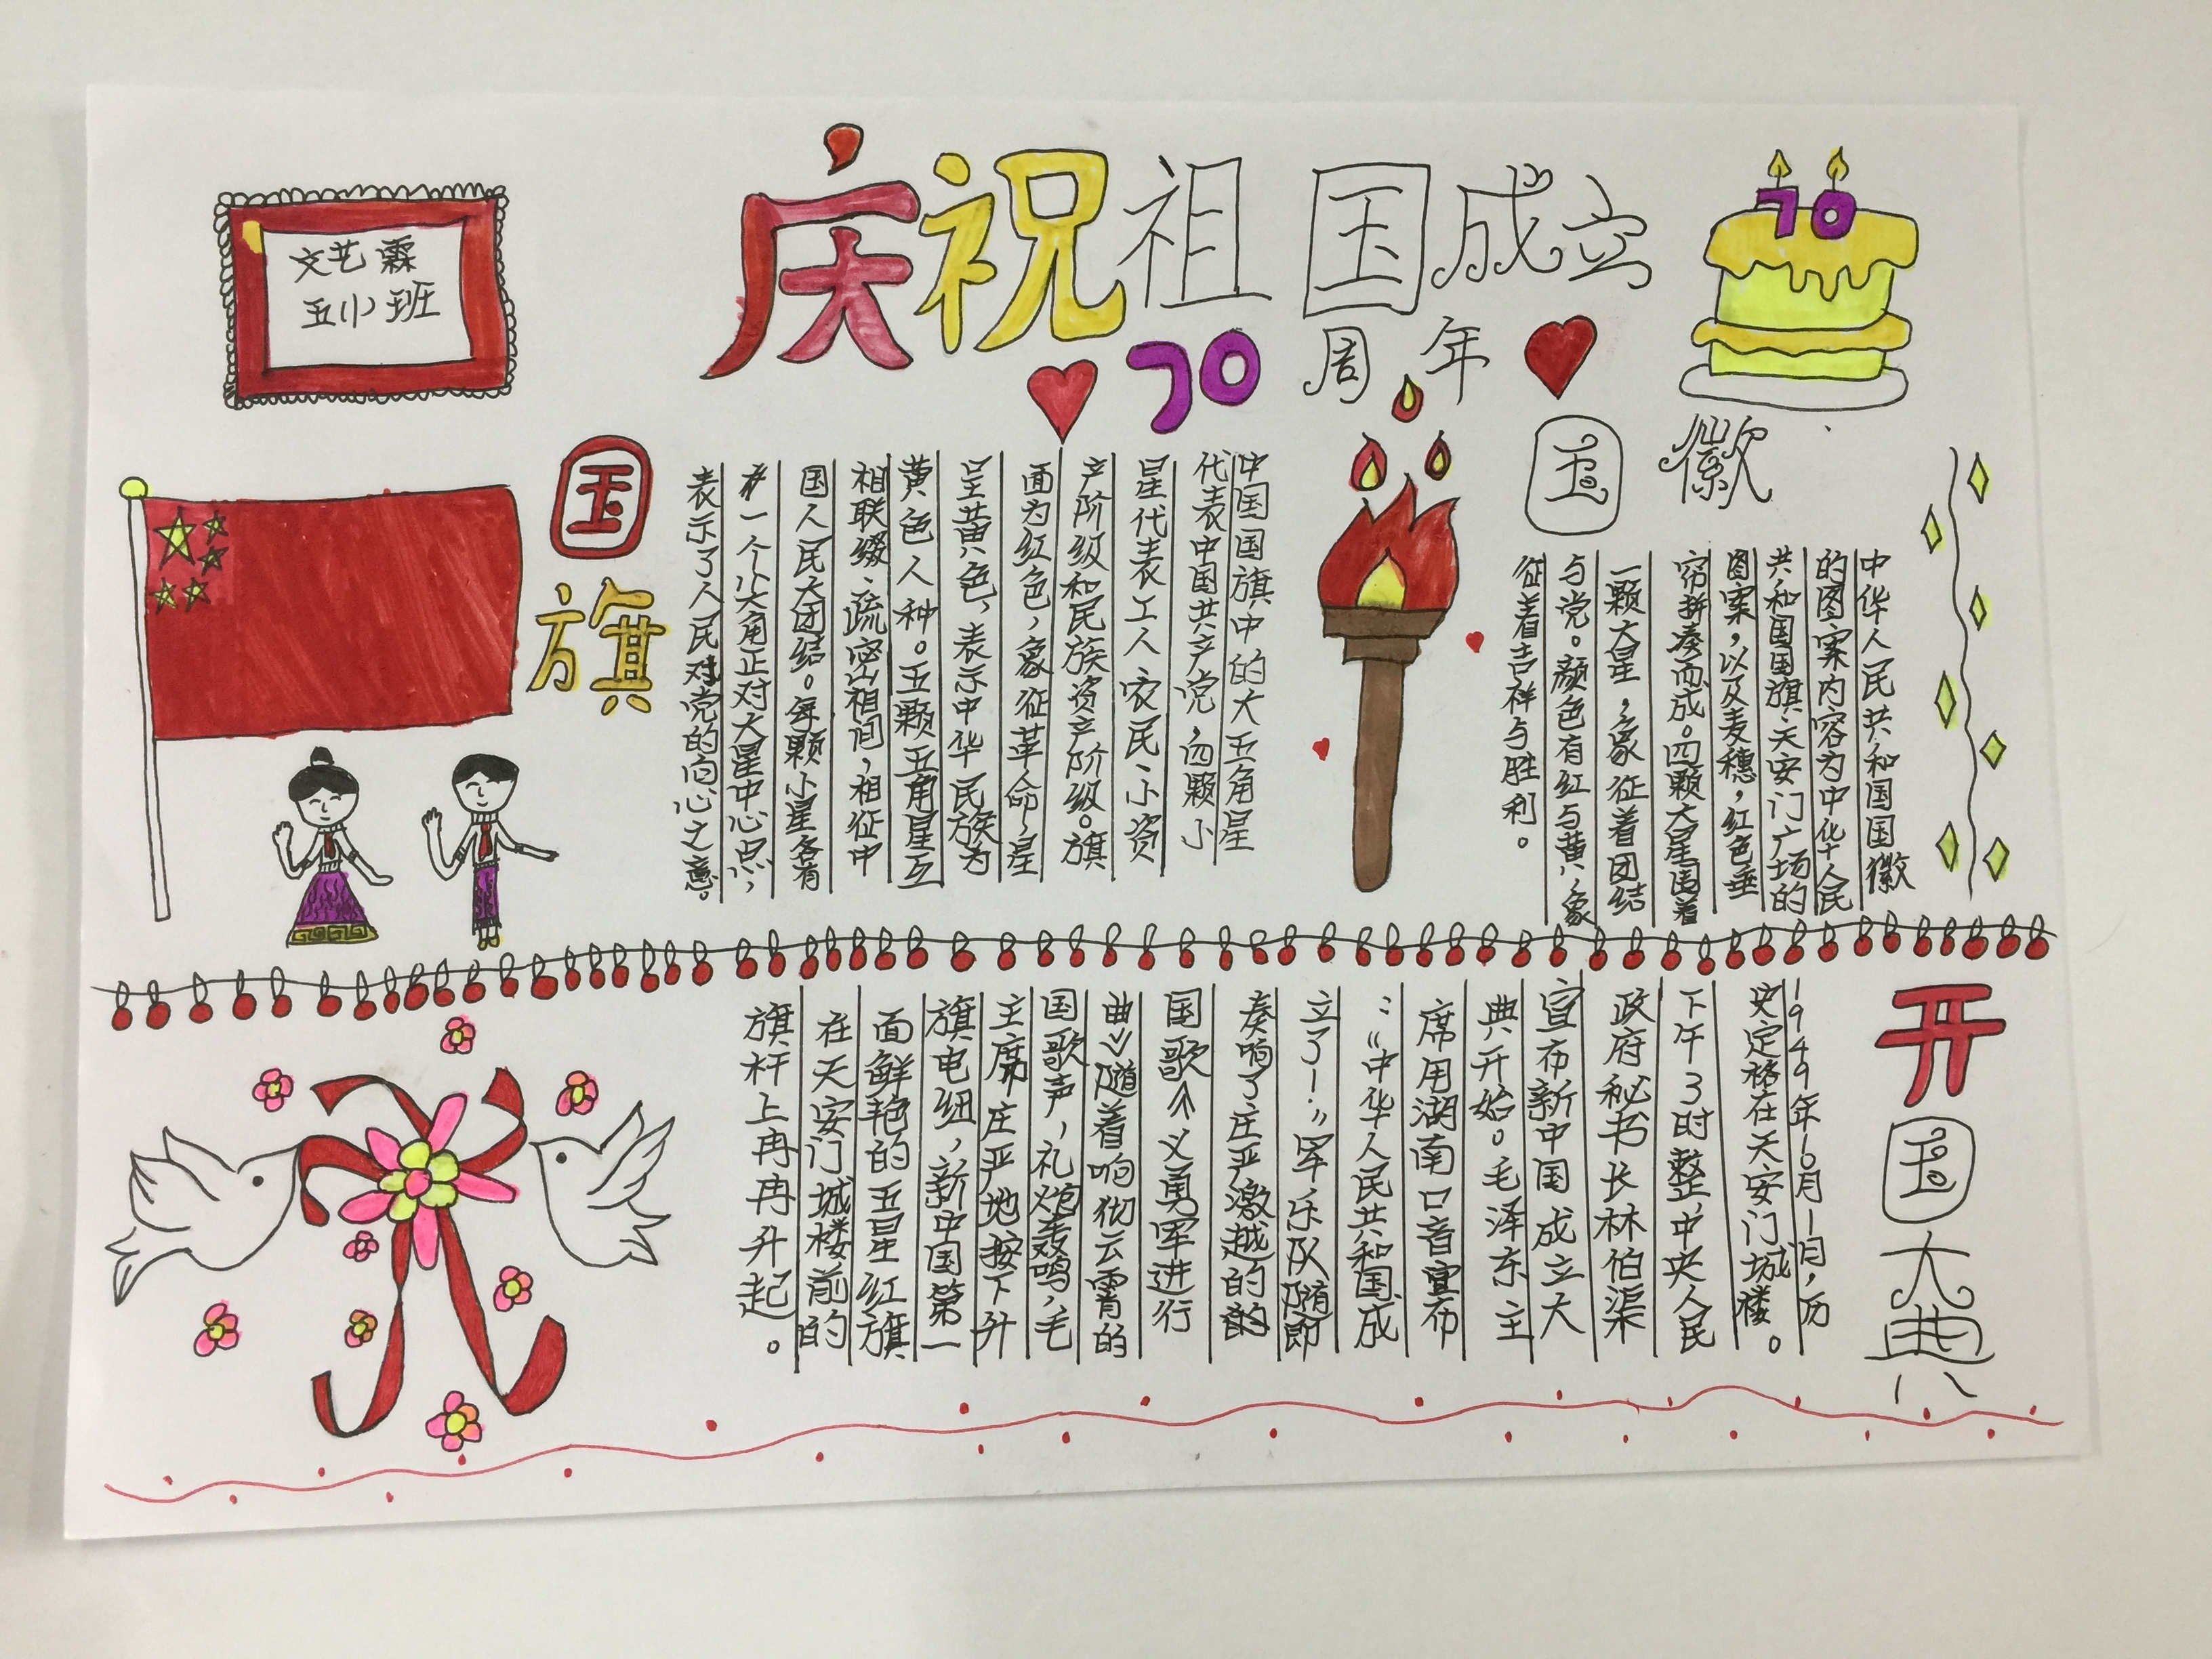 文艺霖
五小班
庆祝祖国成立
70周年
70
国旗
中国国旗中的大五角星
代表中国共产党,四颗小
星代表工人农民、小资
产阶级和民族资产阶级。旗
面为红色,象征革命,星
呈黄色,表示中华民族为
黄色人种。五颗五角星互
相联缀、疏密相间,相征中
国人民大团结。每颗小星各有
一个尖角正对大星中心点,
表示了人民对党的向心之意。
国徽
中华人民共和国国徽
的图案内容为中华人民
共和国国旗、天安门广场的
图案,以及麦穗,红色垂
帘拼凑而成。四颗大星围着
一颗大星,象征着团结
与党。颜色有红与黄,象
征着吉祥与胜利。
开国大典
1949年10月1日,历
史定格在天安门城楼。
下午3时整,中央人民
政府秘书长林伯渠
宣布新中国成立大
典开始。毛泽东主
席用湖南口音宣布
:“中华人民共和国成
立了!”军乐队随即
奏响了庄严激越的的
国歌《义勇军进行
曲》随着响彻云霄的
国歌声,礼炮轰鸣,毛
主席庄严地按下升
旗电纽,新中国第一
面鲜艳的五星红旗
在天安门城楼前的
旗杆上冉冉升起。